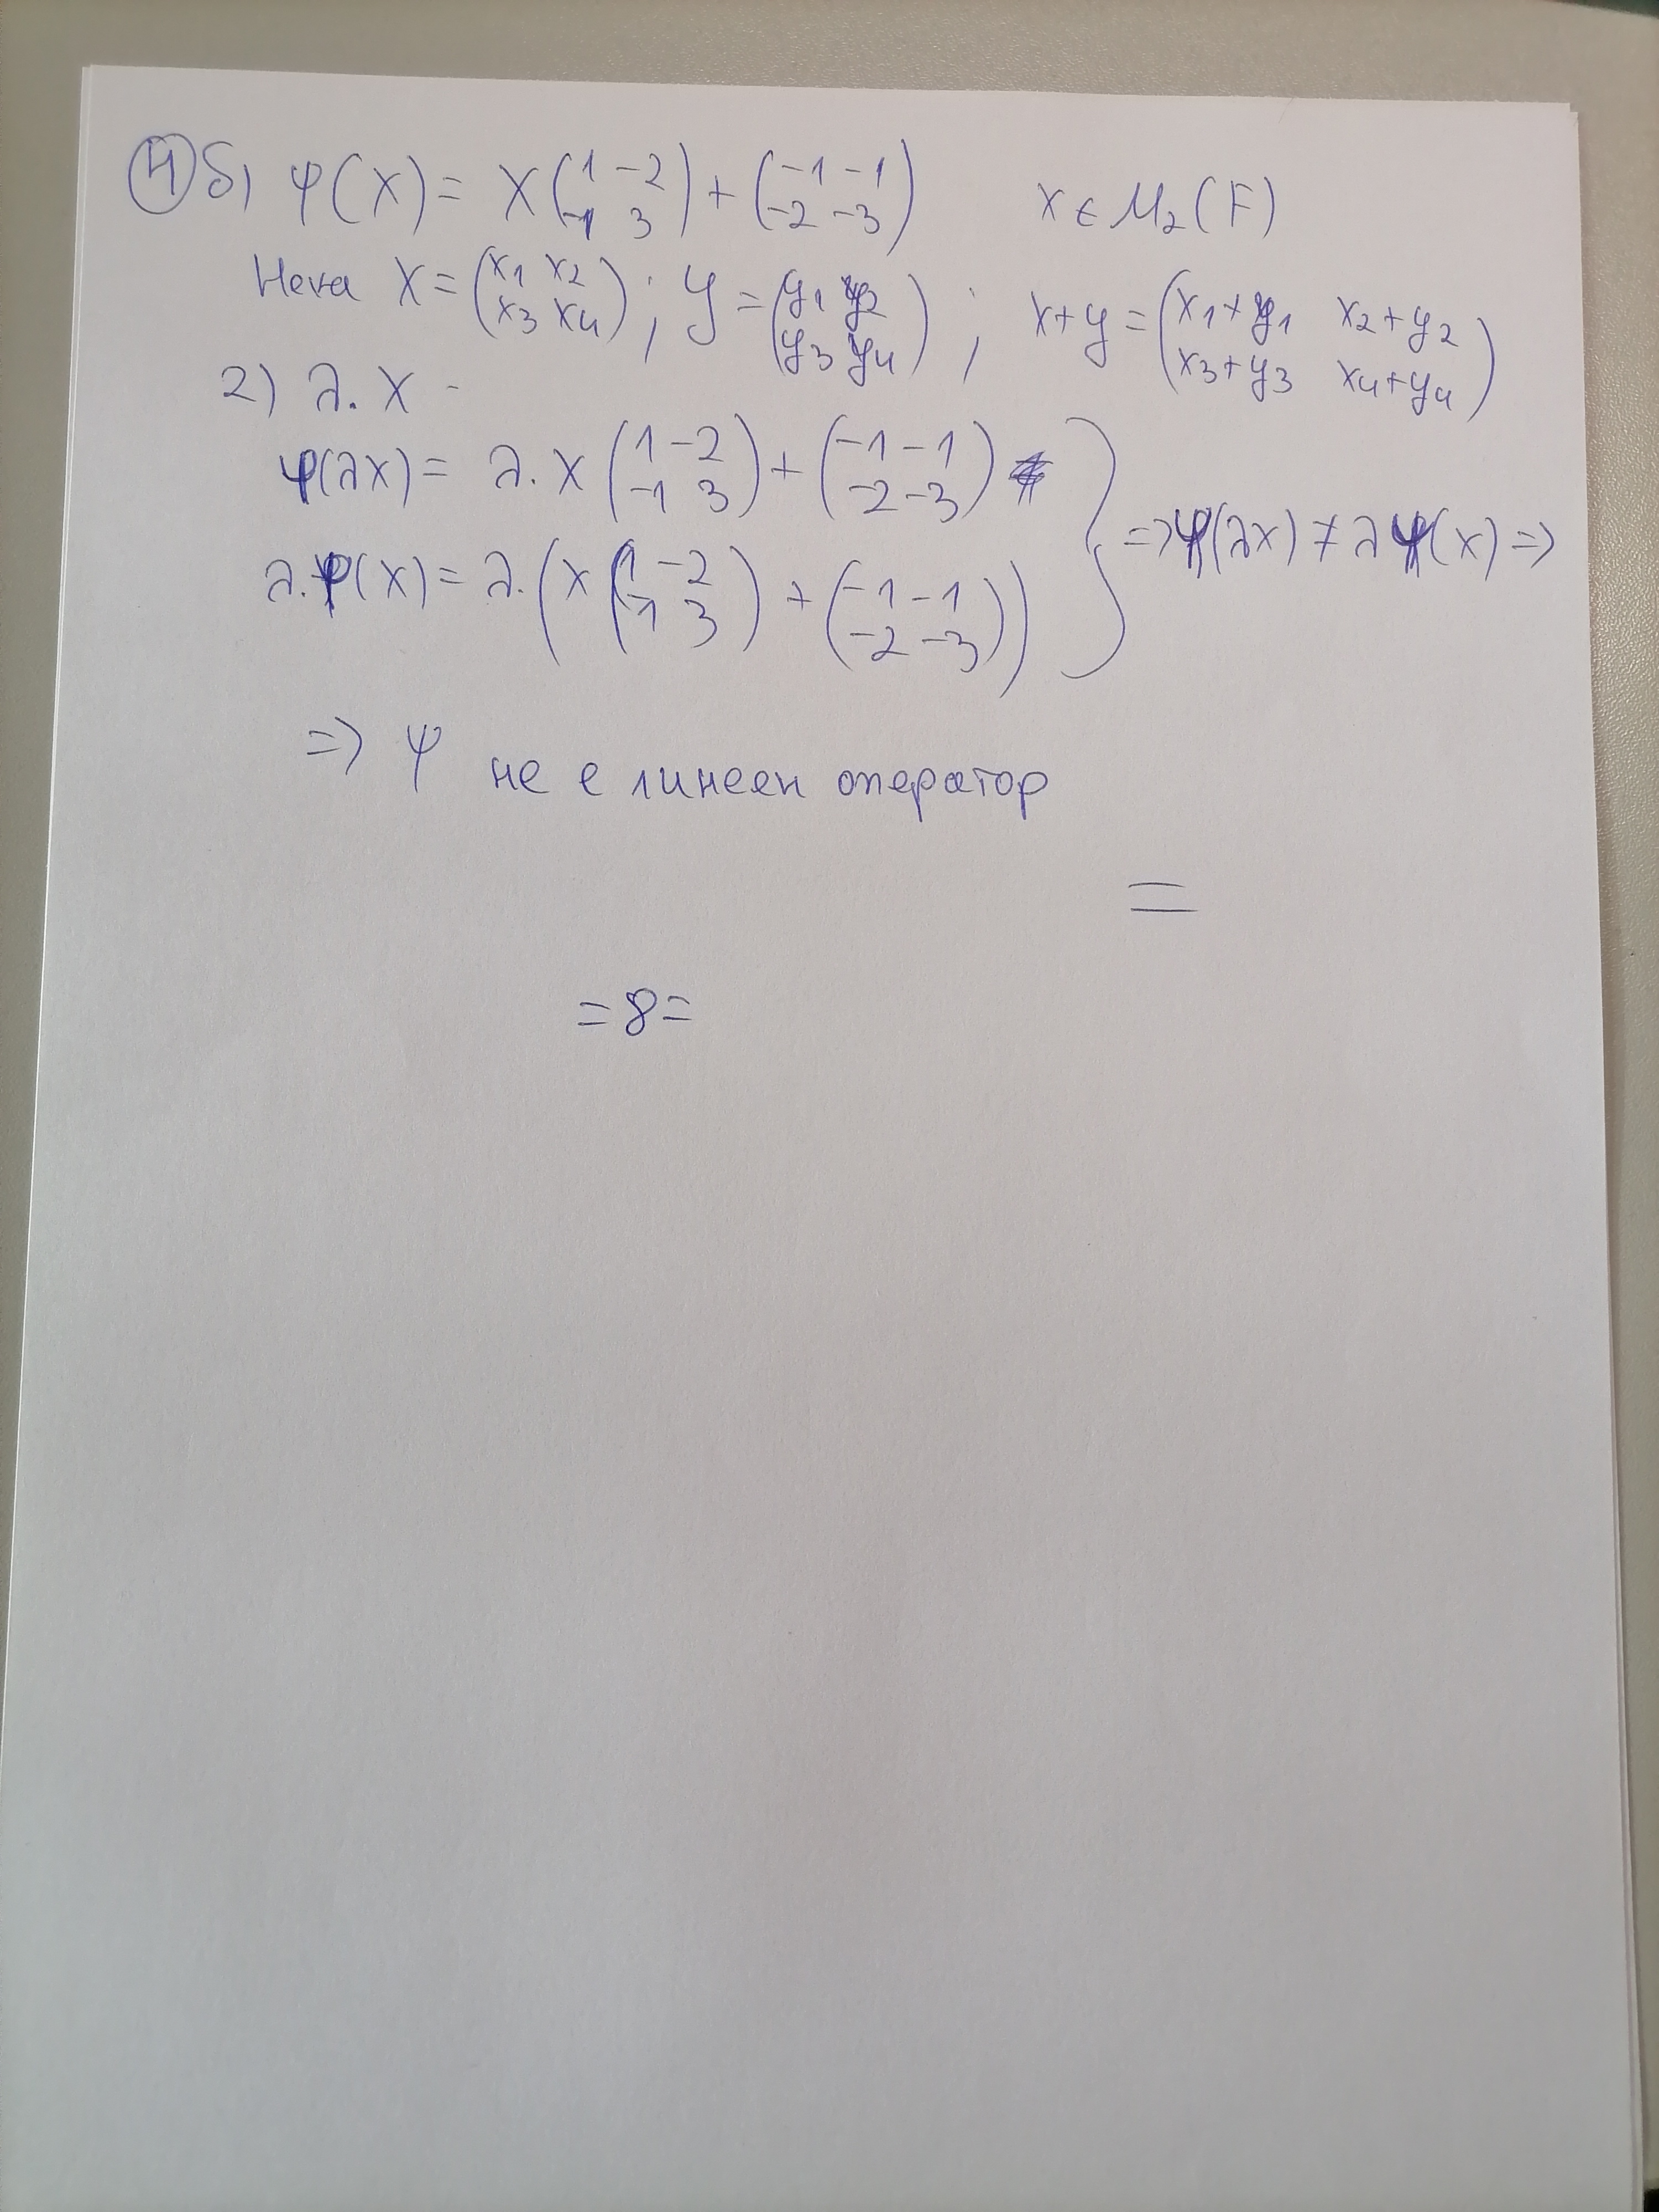 ④ б) φ(X) = X(1 -2; -1 3) + (-1 -1; -2 -3) X ∈ M₂(F)
Нека X = (x₁ x₂; x₃ x₄); y = (y₁ y₂; y₃ y₄); x+y = (x₁+y₁ x₂+y₂; x₃+y₃ x₄+y₄)
2) λ.X -
φ(λX) = λ.X(1 -2; -1 3) + (-1 -1; -2 -3)
λ.φ(X) = λ.(X(1 -2; -1 3) + (-1 -1; -2 -3)) } => φ(λX) ≠ λφ(X) =>
=> φ не е линеен оператор
=
=8=